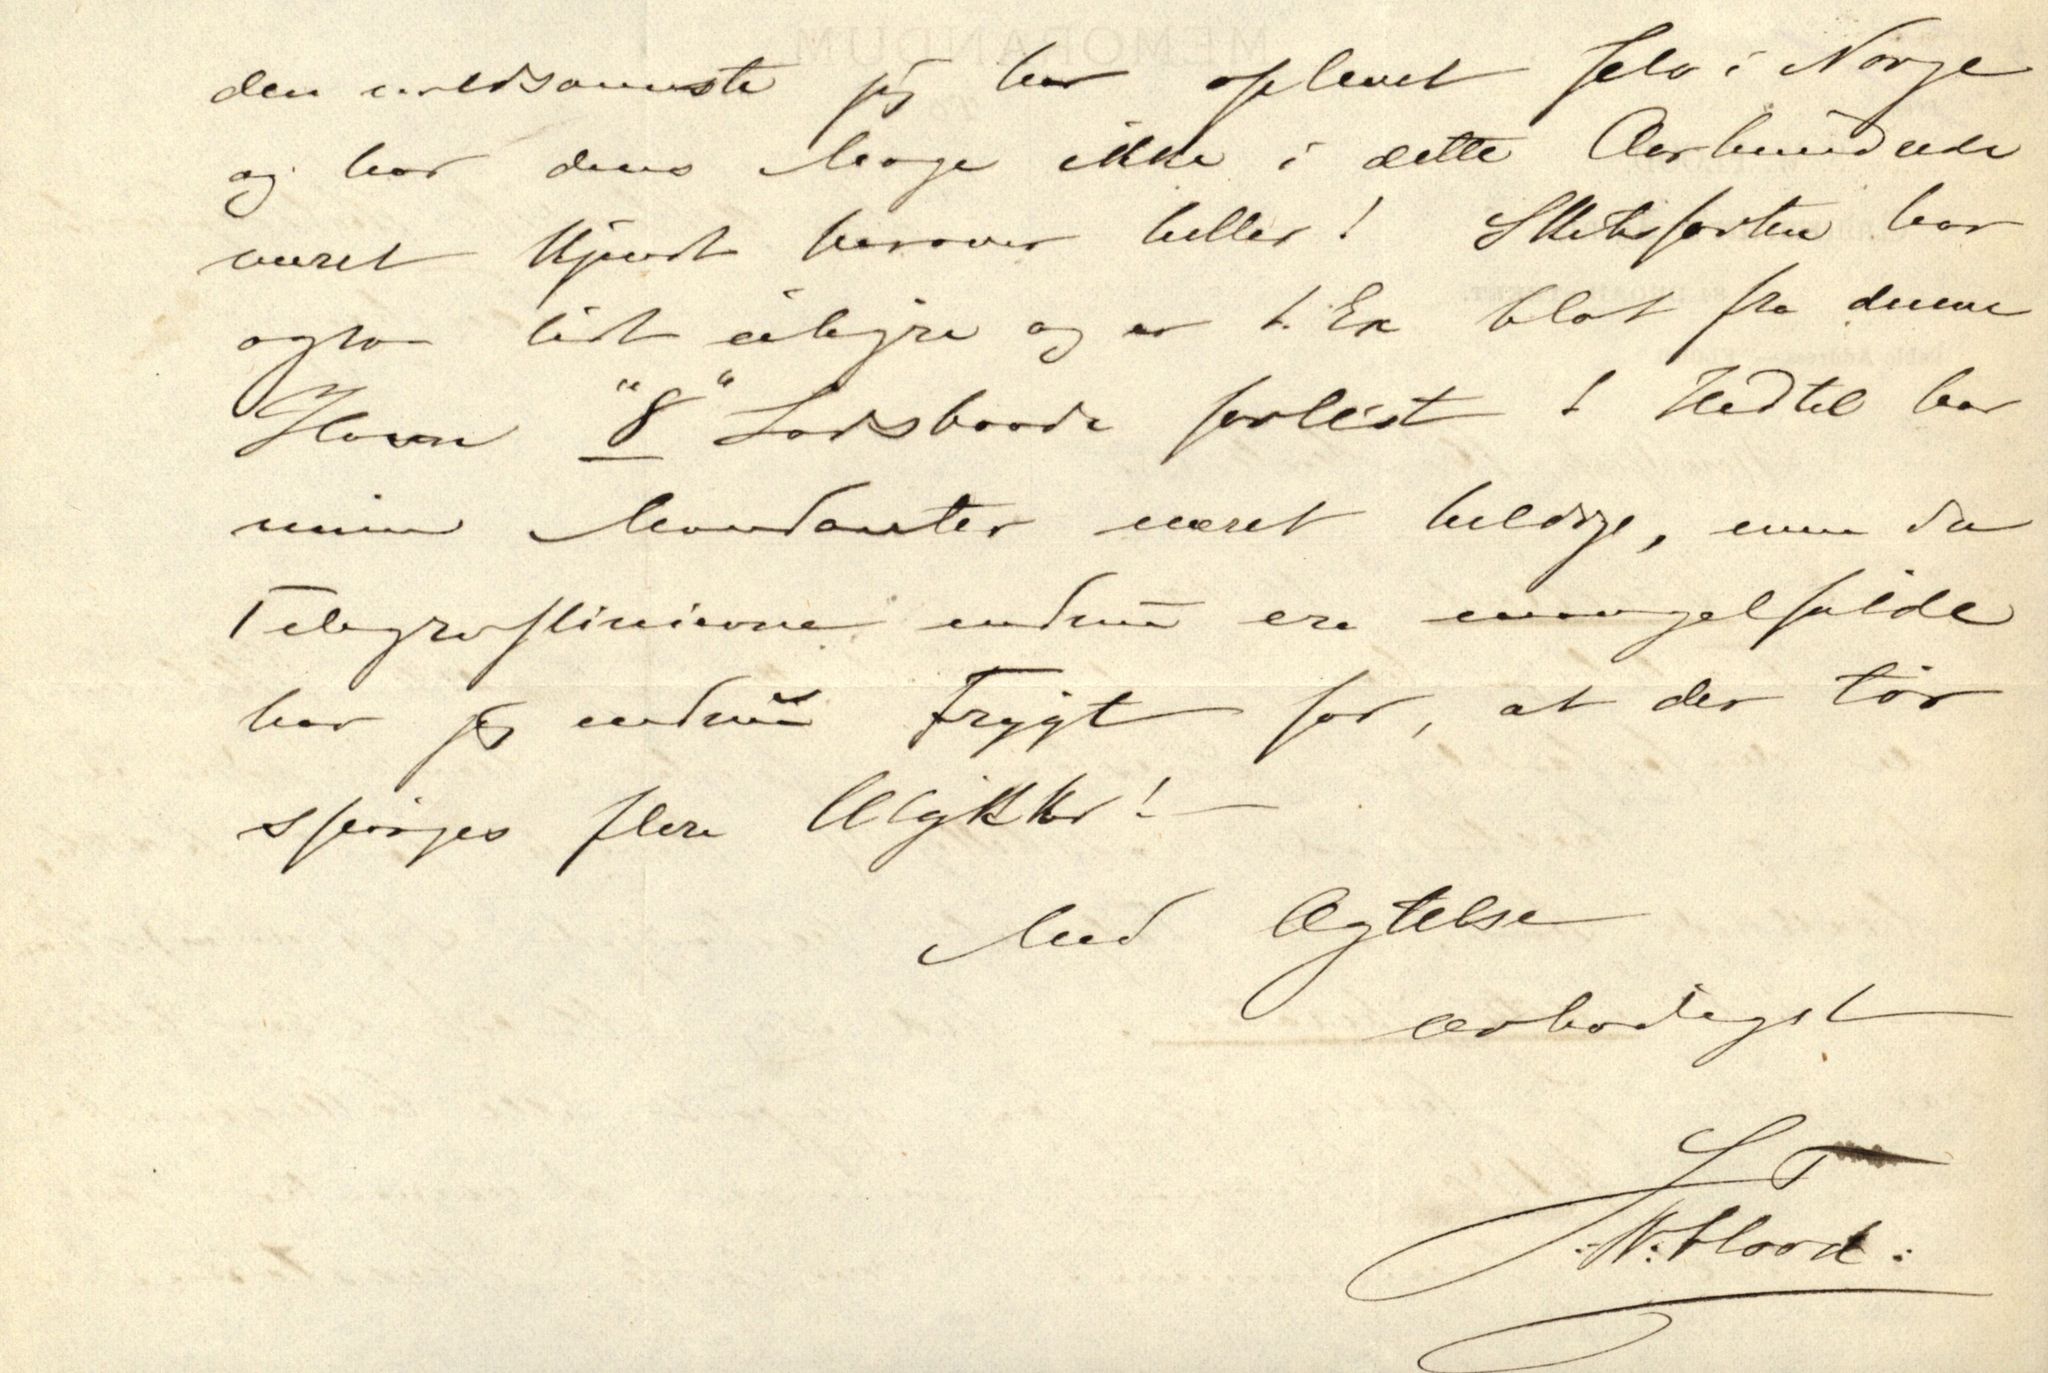 MEMORANDUM
den voldsomste jeg har oplevet selv i Norge
og har dens Mage ikke i dette Aarhundrede
været kjendt herover heller! Skibsfarten har
ogsaa lidt uhyre og er t. Ex blot fra denne
Havn "8" Lodsbaade forlist! Hidtil har
mine Mandanter været heldige, men da
Telegraflinierne endnu ere mangelfulde
har jeg endnu Frygt for, at der tør
spørges flere Ulykker! —
Med Agtelse
ærbødigst
:W. Flood: